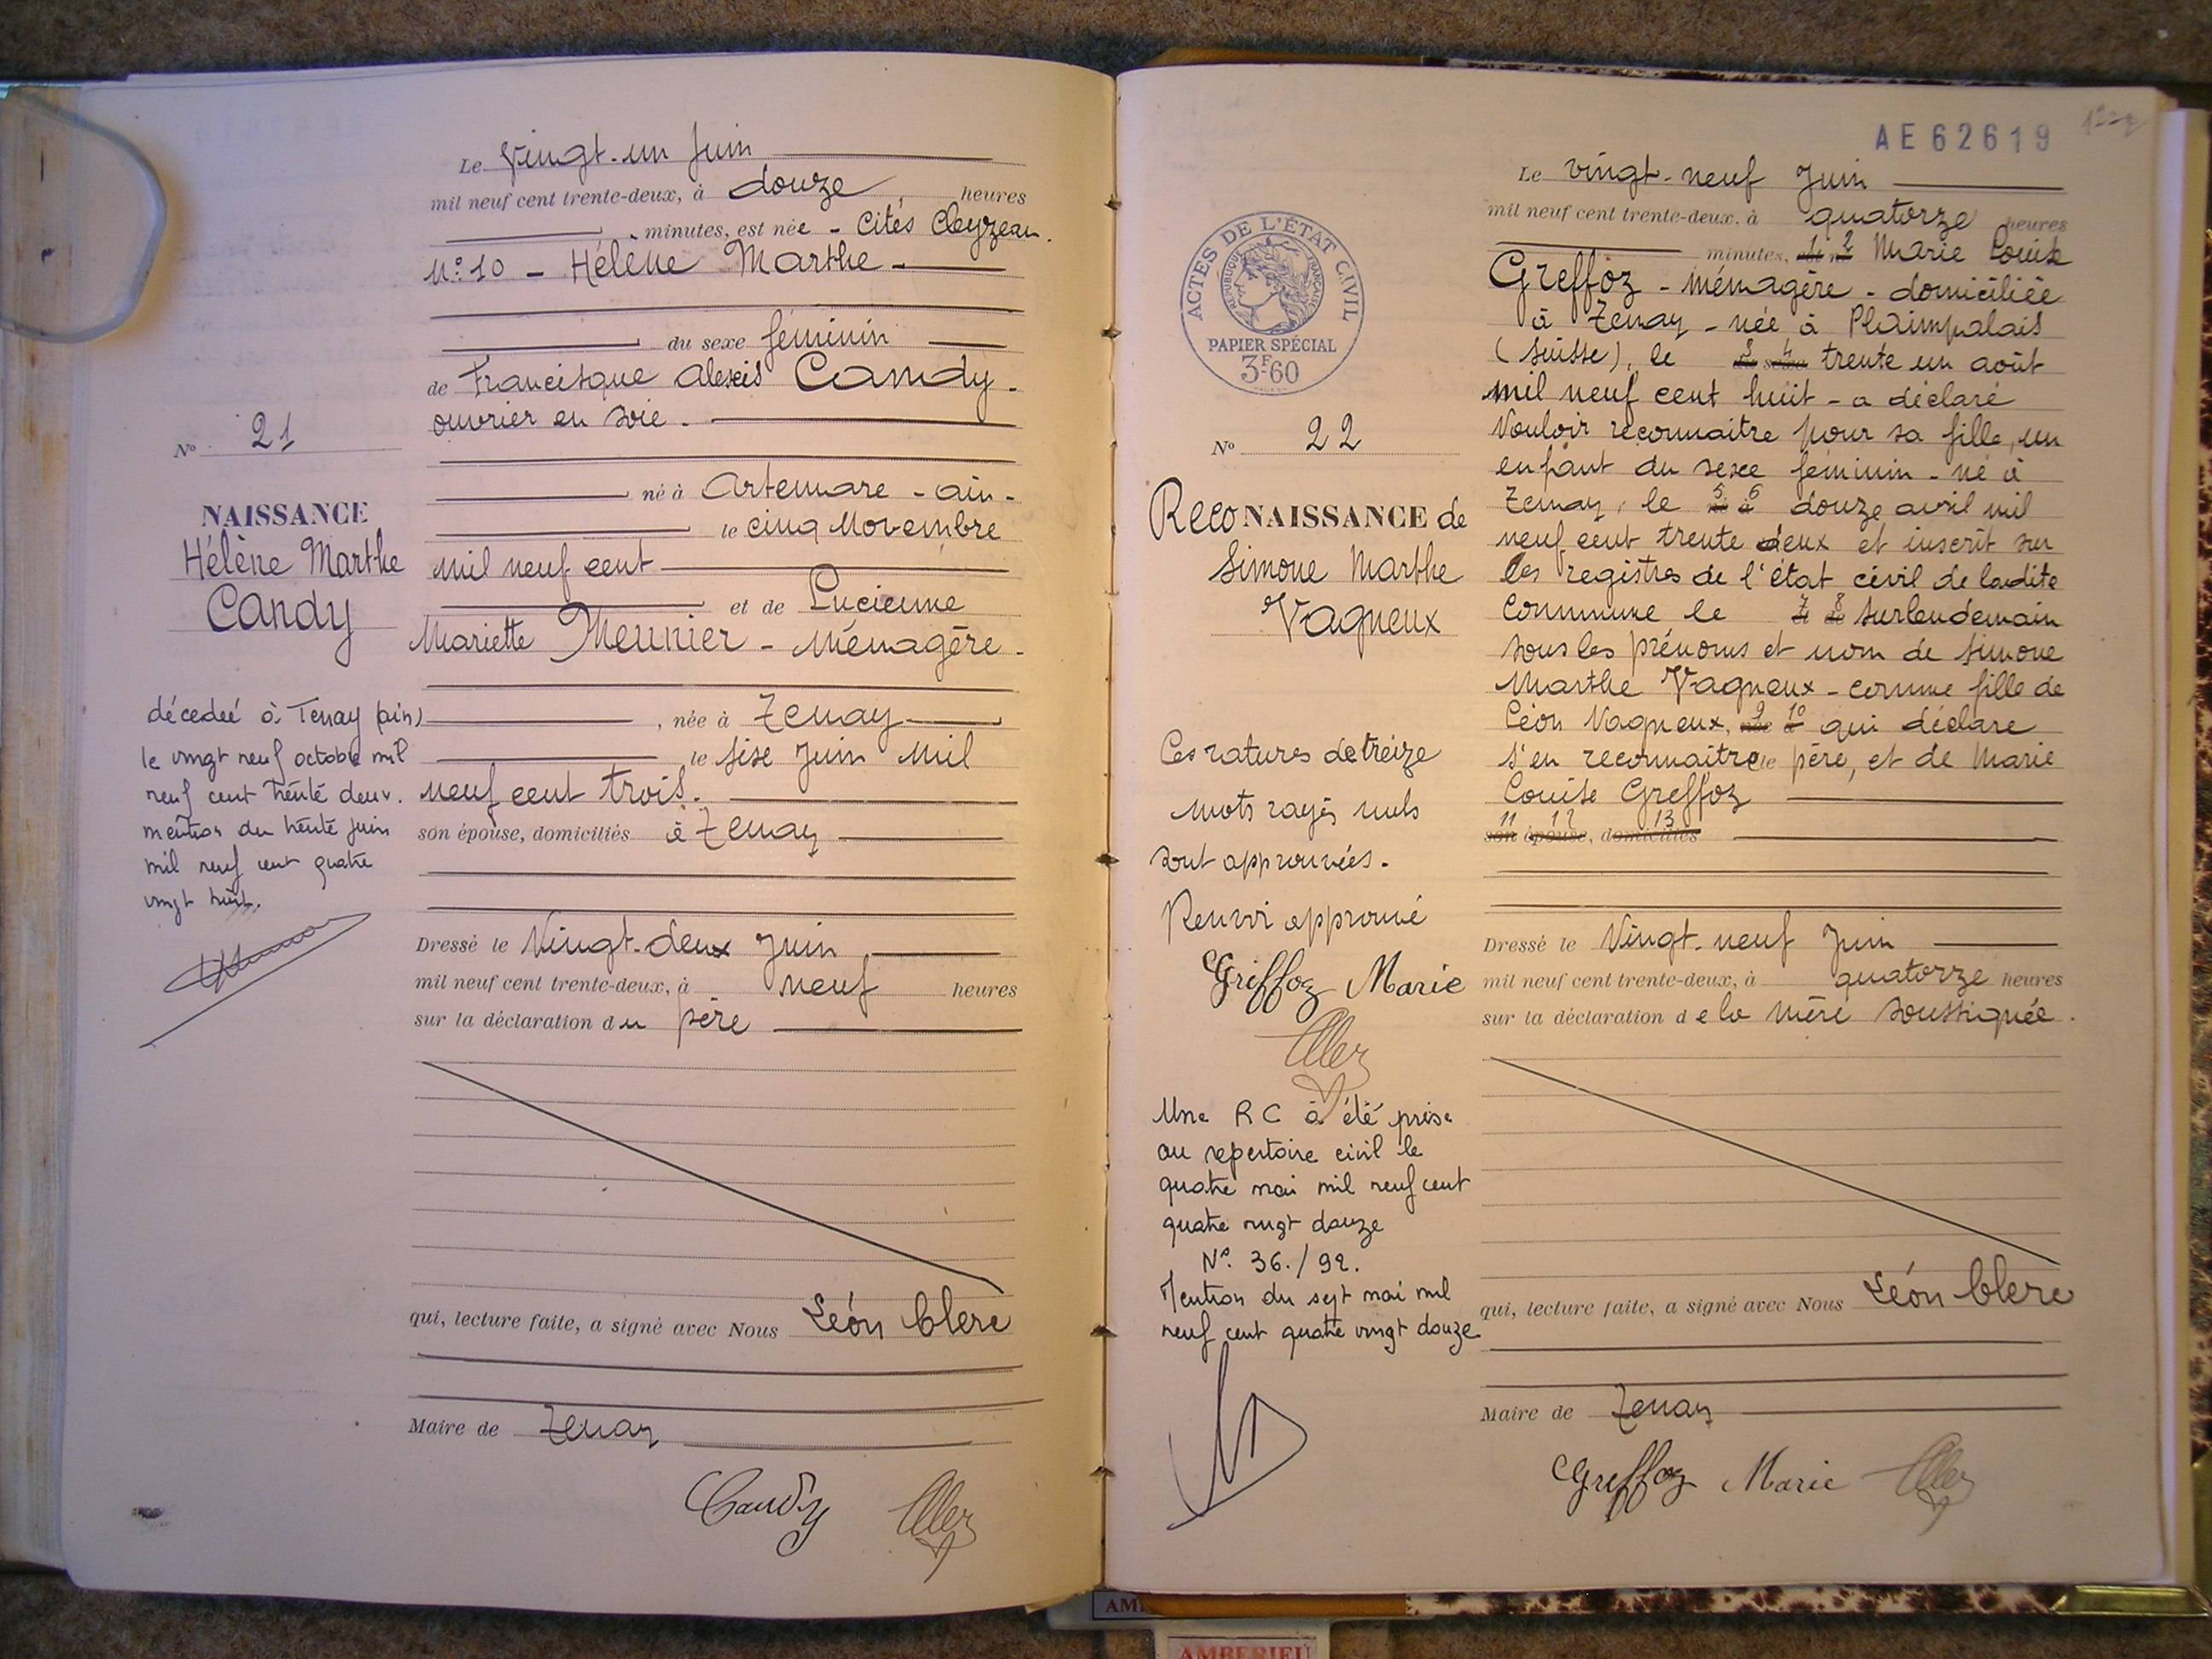 Le Vingt-un Juin
mil neuf cent trente-deux, à douze heures
minutes, est née - Cités Cleyzeau.
N°10 - Hélène Marthe -
du sexe féminin
de Francisque Alexis Candy -
ouvrier en soie -
né à Artemare - Ain -
le cinq Novembre
mil neuf cent
et de Lucienne
Mariette Meunier - Ménagère -
, née à Tenay
le sise Juin mil
neuf cent trois.
son épouse, domiciliés à Tenay
Dressé le Vingt-deux Juin
mil neuf cent trente-deux, à neuf heures
sur la déclaration du père
qui, lecture faite, a signé avec Nous Léon Clerc
Maire de Tenay
Candy
N° 21
NAISSANCE
Hélène Marthe
Candy
décedeé à Tenay (ain)
le vingt neuf octobre mil
neuf cent trente deux.
mention du trente juin
mil neuf cent quatre
vingt huit.
AE 62619
ACTES DE L'ÉTAT CIVIL
RÉPUBLIQUE FRANÇAISE
PAPIER SPÉCIAL
3F60
N° 22
RecoNAISSANCE de
Simone Marthe
Vagneux
Les ratures de treize
mots rayés nuls
sont approuvées.
Renvoi approuvé
Greffoz Marie
Une RC à été prise
au repertoire civil le
quatre mai mil neuf cent
quatre vingt douze
N° 36./92.
Mention du sept mai mil
neuf cent quatre vingt douze
Le vingt-neuf Juin
mil neuf cent trente-deux, à quatorze heures
minutes, est né 1 2 Marie Louise
Greffoz - ménagère - domiciliée
à Tenay - née à Plaimpalais
(Suisse), le du sexe 3 4 trente un août
mil neuf cent huit - a déclaré
Vouloir reconnaitre pour sa fille, un
enfant du sexe féminin - né à
Tenay, le né à 5 6 douze avril mil
neuf cent trente deux et inscrit sur
les registres de l'état civil de ladite
Commune le et de 7 8 surlendemain
sous les prénoms et nom de Simone
Marthe Vagneux - comme fille de
Léon Vagneux, née à 9 10 qui déclare
s'en reconnaitre le père, et de Marie
Louise Greffoz
11 12 13
son épouse, domiciliés
Dressé le Vingt-neuf Juin
mil neuf cent trente-deux, à quatorze heures
sur la déclaration de la mère soussignée.
qui, lecture faite, a signé avec Nous Léon Clerc
Maire de Tenay
Greffoz Marie
AMBERIEU